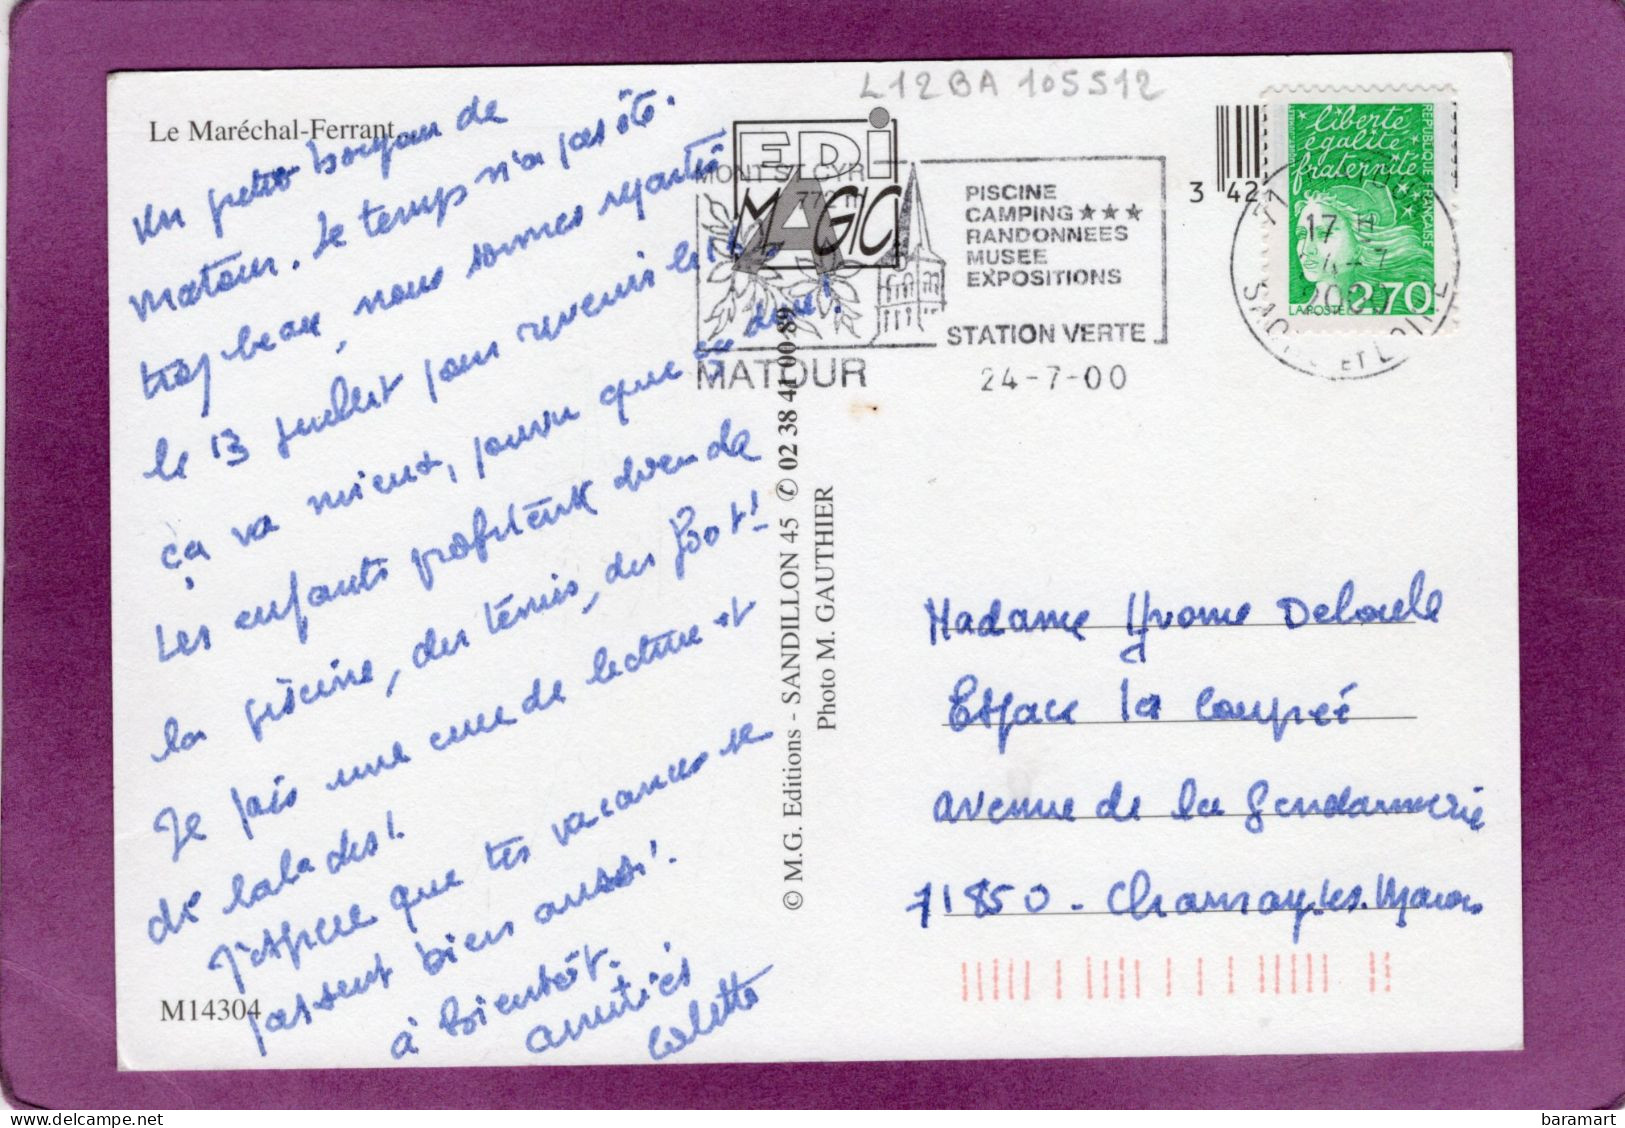 L12BA 105512
Le Maréchal-Ferrant...
Un petit bonjour de
Matour. Le temps n'a pas été
trop beau, nous sommes repartis
le 13 juillet pour revenir le
ça va mieux, pourvu que ça dure!
Les enfants profitent bien de
la piscine, du tennis, du foot!
Je fais une cure de lecture et
de balades!
J'espère que tes vacances se
passent bien aussi!
à bientôt.
amitiés
Colette
M14304
© M.G. Editions - SANDILLON 45 ✆ 02 38 41 00 89
Photo M. GAUTHIER
EDI
MAGIC
MONT ST CYR
772 m
MATOUR
PISCINE
CAMPING ★★★
RANDONNEES
MUSEE
EXPOSITIONS
STATION VERTE
24-7-00
3 42
liberté
égalité
fraternité
REPUBLIQUE FRANÇAISE
LA POSTE 2,70
17 H
2000
SAONE ET LOIRE
Madame Yvonne
Espace la Coupée
avenue de la Gendarmerie
71850 - Charnay-les-Macon
baramart delcampe.net